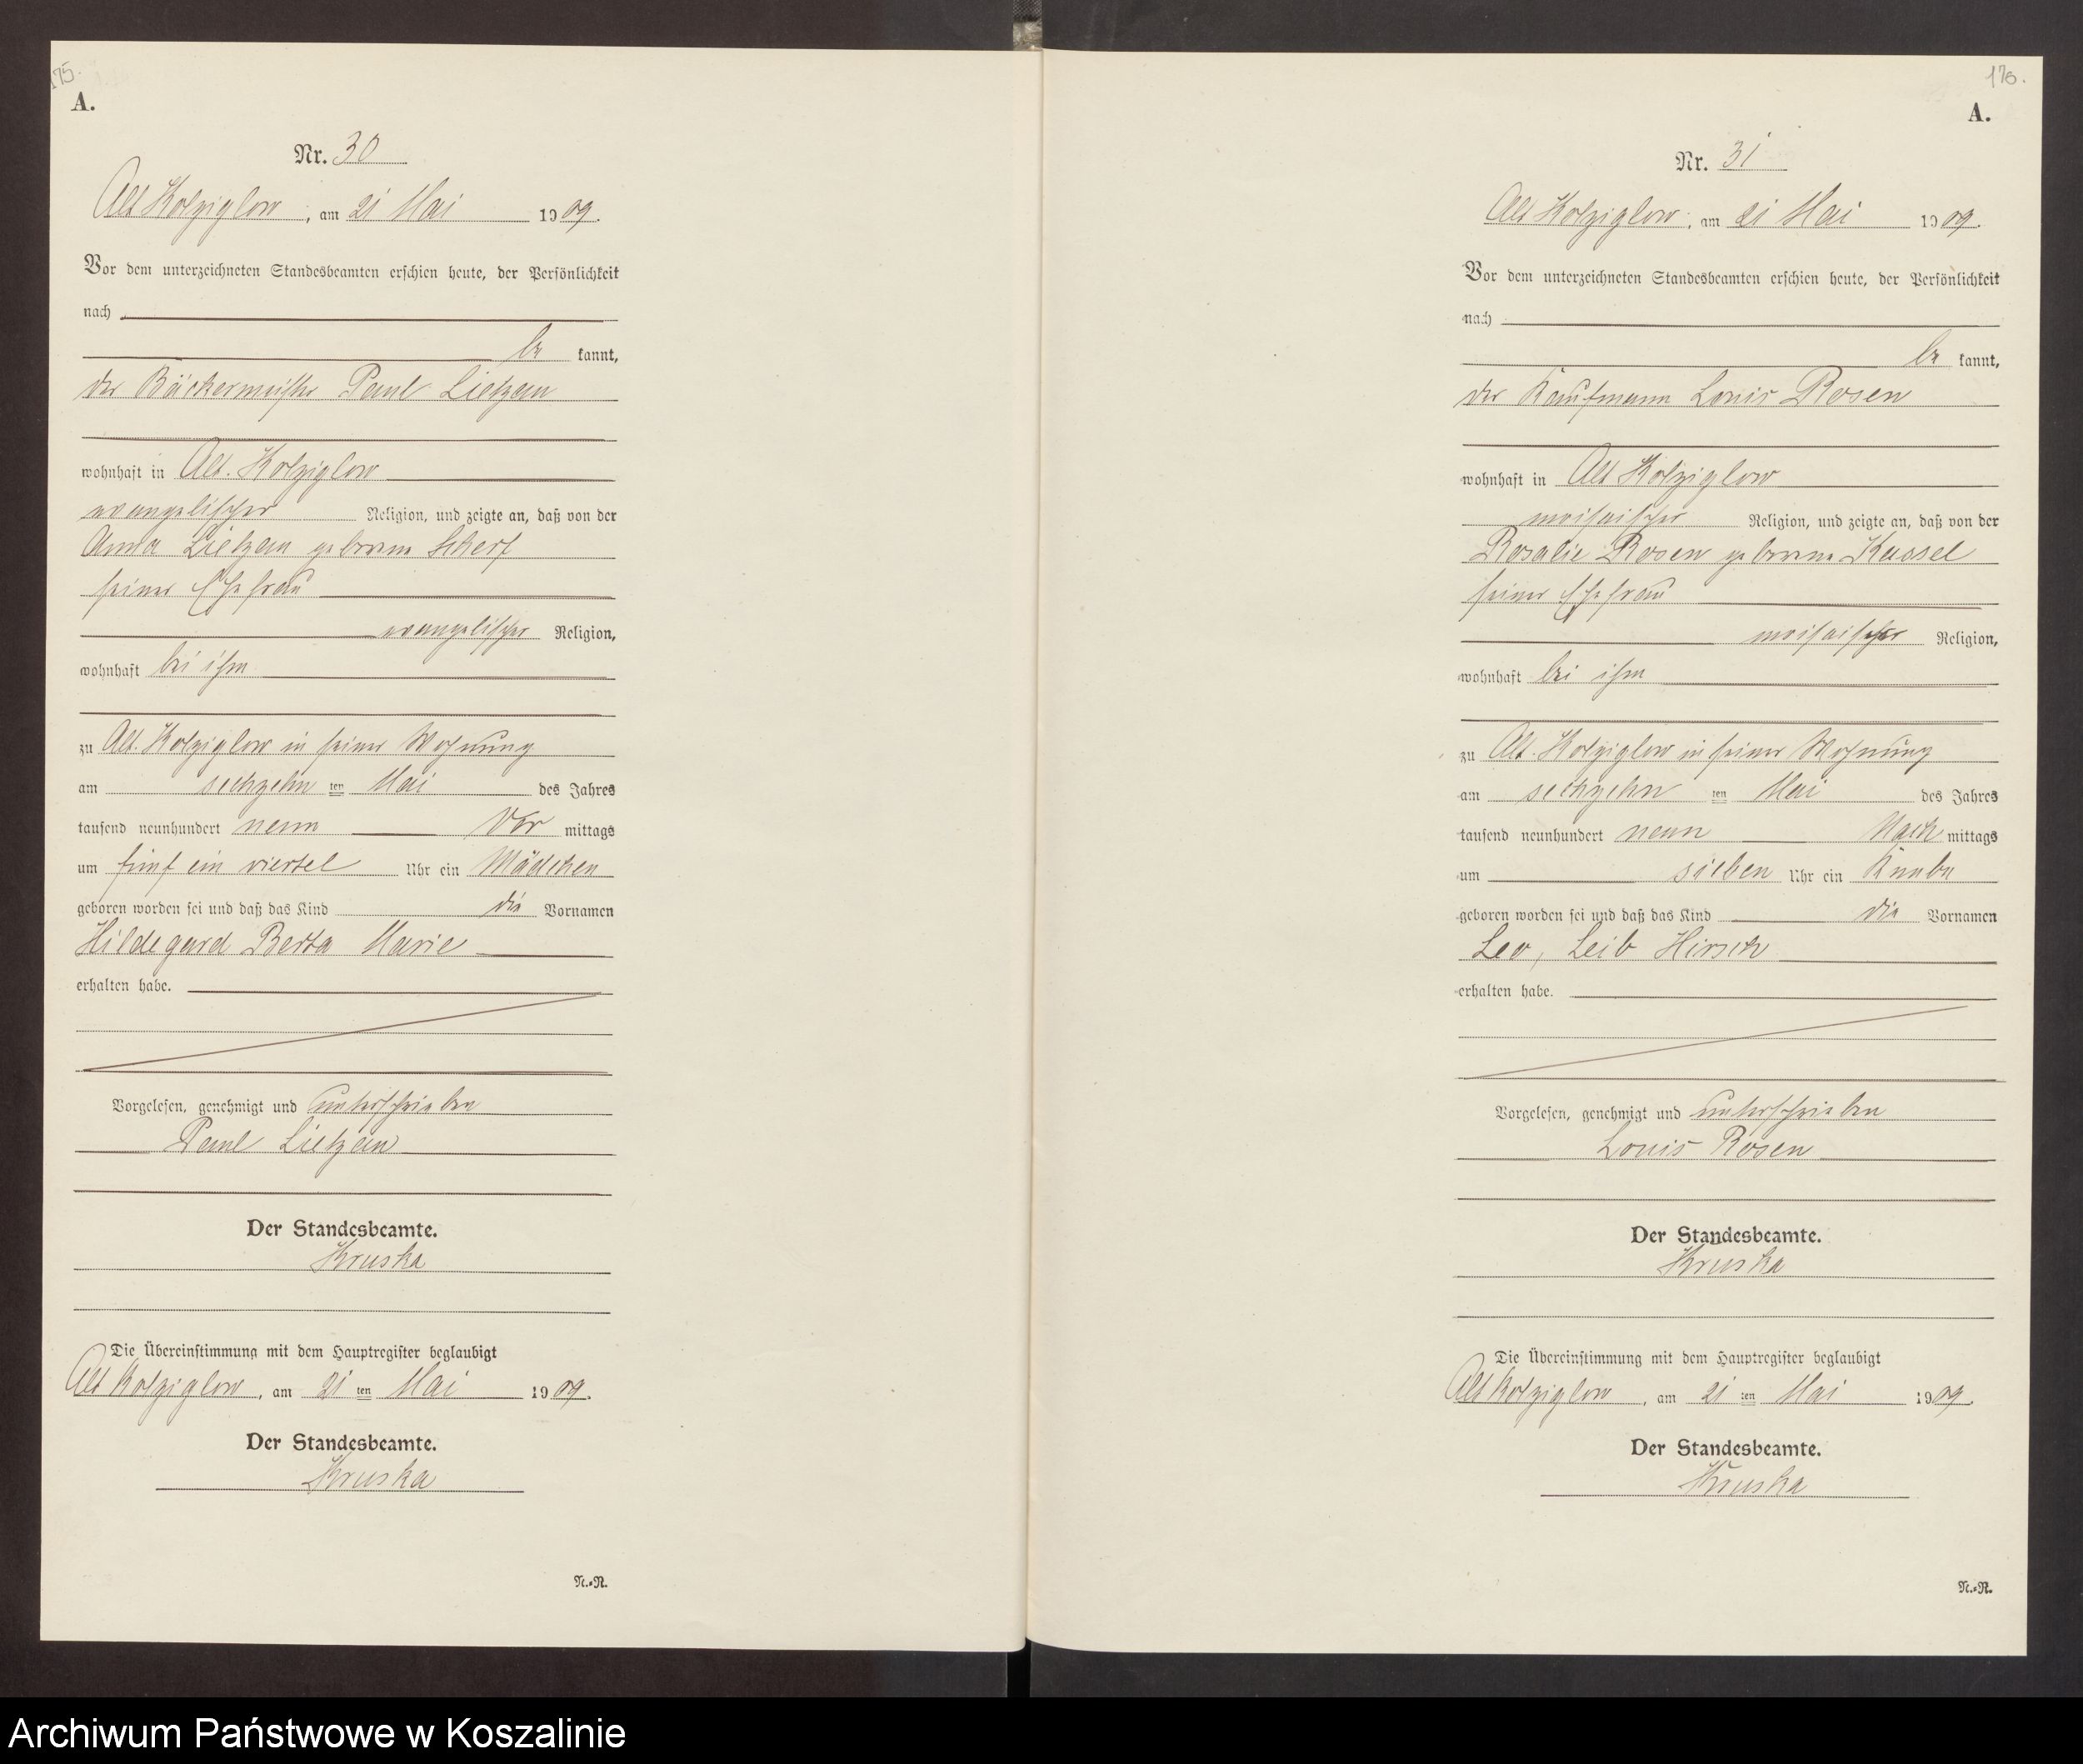 175.
A.
Nr. 30
Alt Kolziglow, am 21 Mai 1909.
Vor dem unterzeichneten Standesbeamten erschien heute, der Persönlichkeit
nach
be kannt,
der Bäckermeister Paul Lietzau
wohnhaft in Alt. Kolziglow
evangelischer Religion, und zeigte an, daß von der
Anna Lietzau geborene Scherf
seiner Ehefrau
evangelischer Religion,
wohnhaft bei ihm
zu Alt. Kolziglow in seiner Wohnung
am sechzehn ten Mai des Jahres
tausend neunhundert neun Vor mittags
um fünf ein viertel Uhr ein Mädchen
geboren worden sei und daß das Kind die Vornamen
Hildegard Berta Marie
erhalten habe.
Vorgelesen, genehmigt und unterschrieben
Paul Lietzau
Der Standesbeamte.
Kruska
Die Übereinstimmung mit dem Hauptregister beglaubigt
Alt Kolziglow, am 21 ten Mai 1909.
Der Standesbeamte.
Kruska
N.-R.
176.
A.
Nr. 31
Alt Kolziglow, am 21 Mai 1909.
Vor dem unterzeichneten Standesbeamten erschien heute, der Persönlichkeit
nach
be kannt,
der Kaufmann Louis Rosen
wohnhaft in Alt Kolziglow
mosaischer Religion, und zeigte an, daß von der
Rosalie Rosen geborene Kassel
seiner Ehefrau
mosaischer Religion,
wohnhaft bei ihm
zu Alt. Kolziglow in seiner Wohnung
am sechzehn ten Mai des Jahres
tausend neunhundert neun Nach mittags
um sieben Uhr ein Knabe
geboren worden sei und daß das Kind die Vornamen
Leo, Leib Hirsch
erhalten habe.
Vorgelesen, genehmigt und unterschrieben
Louis Rosen
Der Standesbeamte.
Kruska
Die Übereinstimmung mit dem Hauptregister beglaubigt
Alt Kolziglow, am 21 ten Mai 1909.
Der Standesbeamte.
Kruska
N.-R.
Archiwum Państwowe w Koszalinie